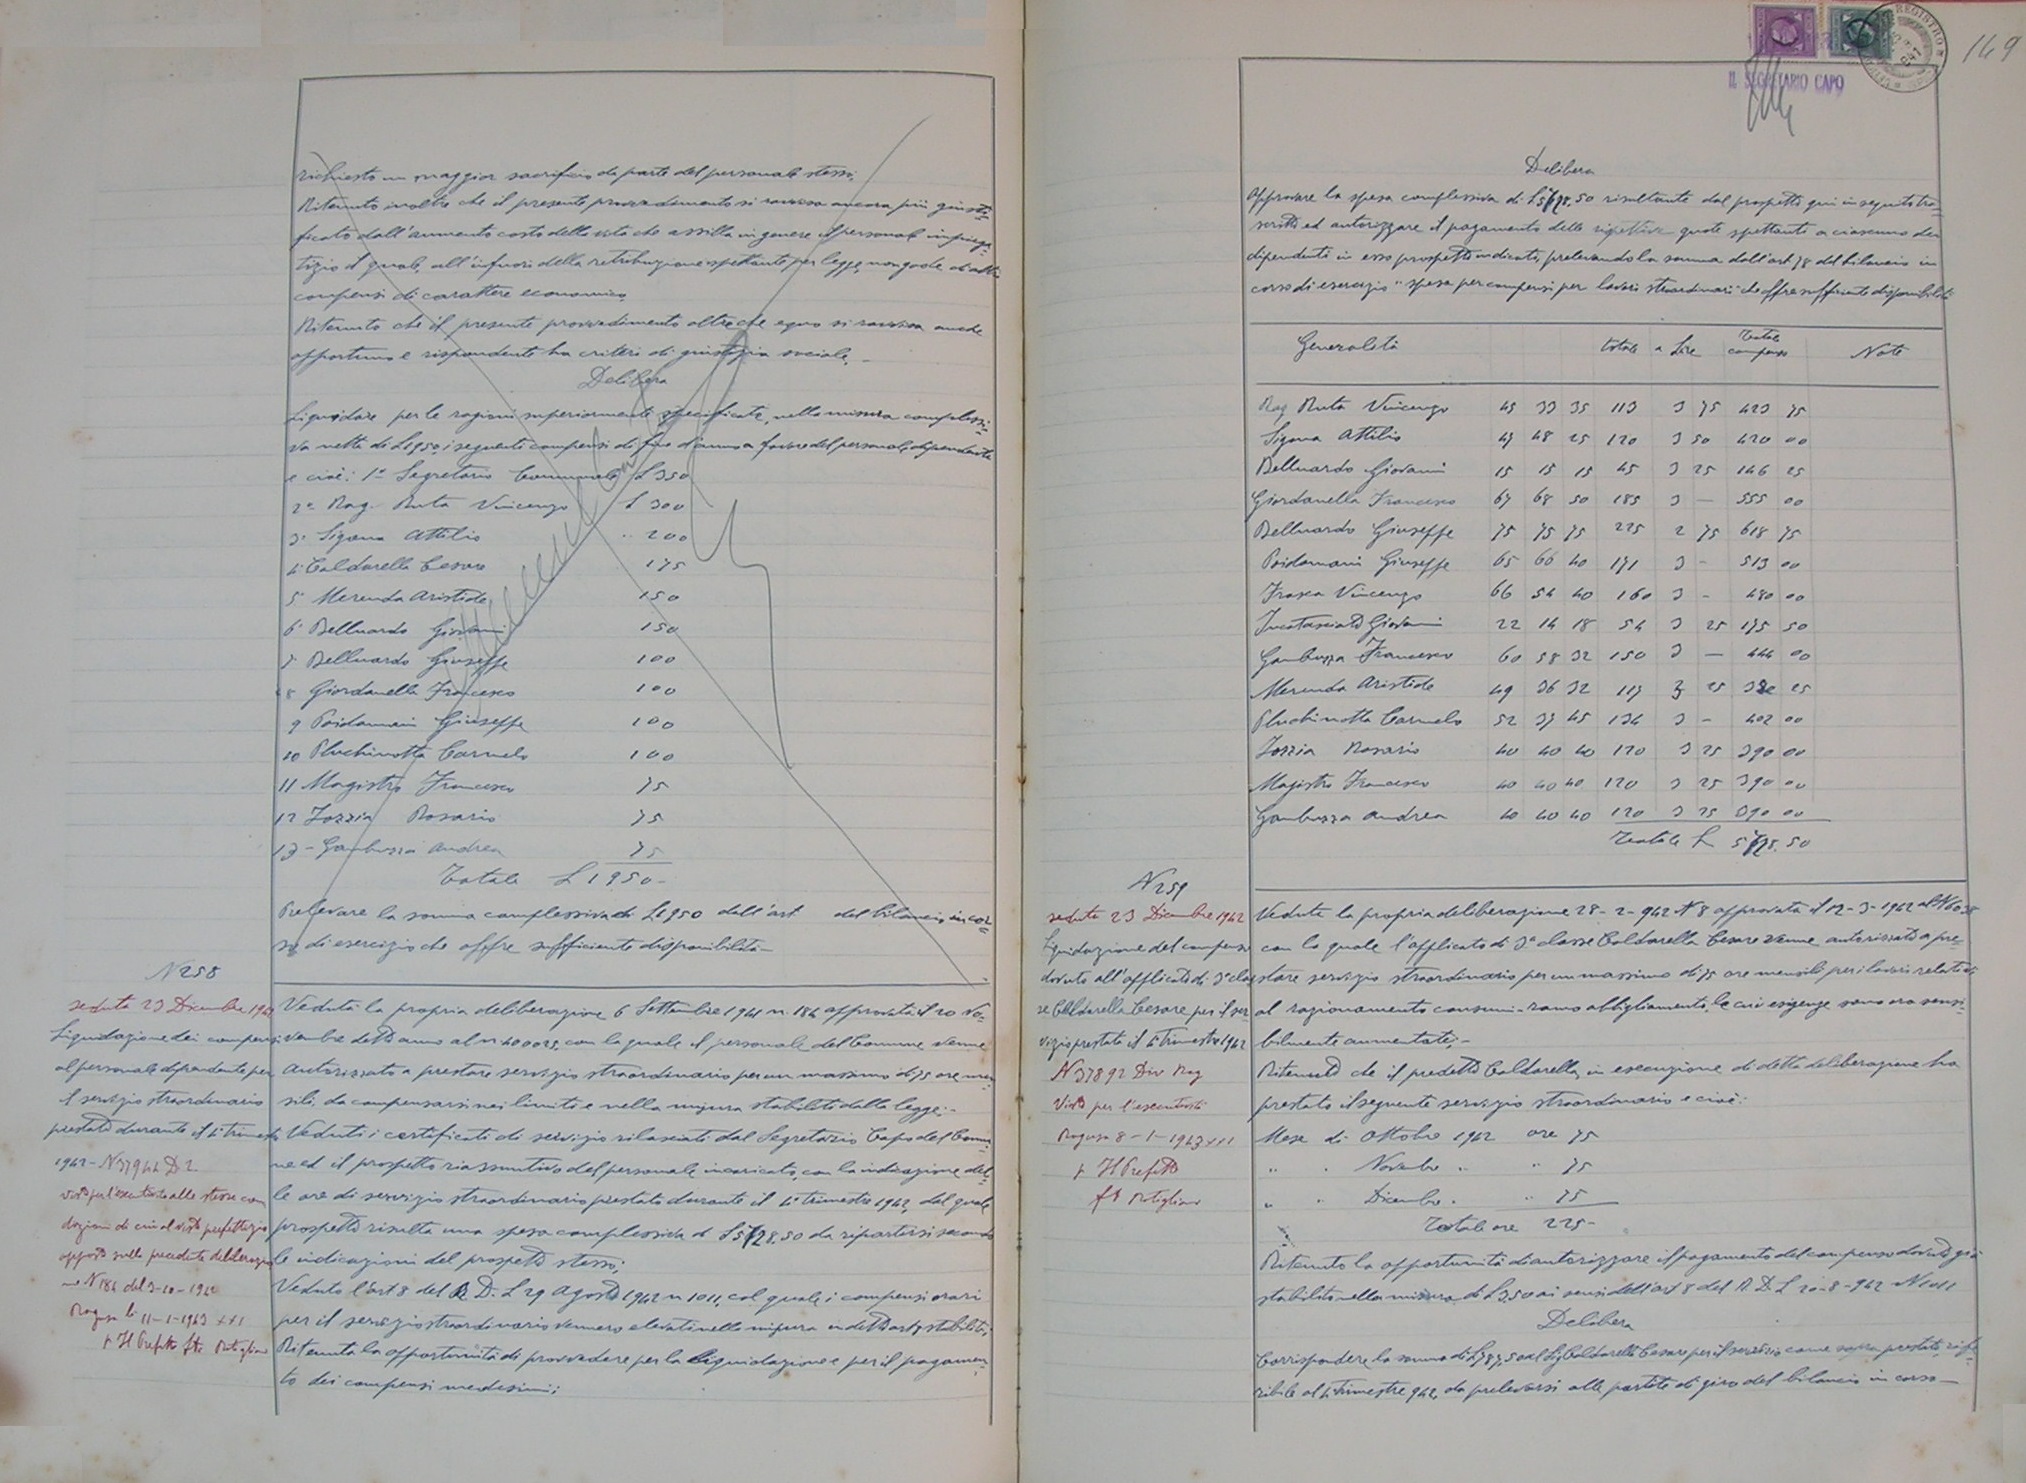 richiesto un maggior sacrificio da parte del personale stesso;
Ritenuto inoltre che il presente provvedimento si ravvisa ancora più giusti-
ficato dall'aumento costo della vita che assilla in genere il personale impiega-
tizio il quale, all'infuori della retribuzione spettante per legge, non gode di altri
compensi di carattere economico,
Ritenuto che il presente provvedimento oltre che equo si ravvisa anche
opportuno e rispondente ha criteri di giustizia sociale. -
Delibera
Liquidare per le ragioni superiormente specificate, nella misura complessi-
va netta di L 1950 i seguenti compensi di fine d'anno a favore del personale dipendente
e cioè: 1° Segretario Comunale L 350
2° Rag. Ruta Vincenzo L 300
3° Sigona Attilio " 200
4° Caldarella Cesare 175
5° Merenda Aristide 150
6° Belluardo Giovanni 150
7 Belluardo Giuseppe 100
8 Giordanella Francesco 100
9 Poidomani Giuseppe 100
10 Pluchinotta Carmelo 100
11 Magistro Francesco 75
12 Iozzia Rosario 75
13 - Gambuzza Andrea 75
Totale L 1950 -
Prelevare la somma complessiva di L 1950 dell'art del bilancio in cor-
so di esercizio che offre sufficiente disponibilità -
N 258
seduta 23 Dicembre 1942
Liquidazione dei compensi
al personale dipendente per
il servizio straordinario
prestato durante il 4° trimestre
1942 - N 37944 D 2
visto per l'esecutorietà alle stesse con
dizioni di cui al visto prefettizio
apposto sulla precedente deliberazio
ne N 184 del 3-10-1942
Ragusa li 11-1-1943 XXI
p Il Prefetto fto Rutigliano
Veduta la propria deliberazione 6 Settembre 1941 n. 184 approvata il 20 No-
vembre detto anno al n. 40002, con la quale il personale del Comune venne
autorizzato a prestare servizio straordinario per un massimo di 75 ore men-
sili, da compensarsi nei limiti e nella misura stabilite dalla legge: -
Veduti i certificati di servizio rilasciati dal Segretario Capo del Comu-
ne ed il prospetto riassuntivo del personale incaricato, con la indicazione del-
le ore di servizio straordinario prestato durante il 4° trimestre 1942, dal quale
prospetto risulta una spesa complessiva di L 5728.50 da ripartirsi secondo
le indicazioni del prospetto stesso;
Veduto l'art 8 del R. D. L 29 Agosto 1942 n 1011, col quale i compensi orari
per il servizio straordinario vennero elevati nella misura in detto art stabilita;
Ritenuta la opportunità di provvedere per la liquidazione e per il pagamen-
to dei compensi medesimi;
149
IL SEGRETARIO CAPO
Delibera
Approvare la spesa complessiva di L risultante dal prospetto qui in seguito tra-
scritto ed autorizzare il pagamento delle rispettive quote spettanti a ciascuno dei
dipendenti in esso prospetto indicati, prelevando la somma dall'art 78 del bilancio in
corso di esercizio "spesa per compensi per lavori straordinari" che offre sufficiente disponibilità
Generalità totale a Lire Totale compenso Note
Rag Ruta Vincenzo 45 33 35 113 3 75 423 75
Sigona Attilio 47 48 25 120 3 50 420 00
Belluardo Giovanni 15 15 15 45 3 25 146 25
Giordanella Francesco 67 68 50 185 3 — 555 00
Belluardo Giuseppe 75 75 75 225 2 75 618 75
Poidomani Giuseppe 65 66 40 171 3 - 513 00
Frasca Vincenzo 66 54 40 160 3 - 480 00
Giovanni 22 14 18 54 3 25 175 50
Gambuzza Francesco 60 58 32 150 3 — 444 00
Merenda Aristide 49 36 32 117 3 25 25
Pluchinotta Carmelo 52 37 45 134 3 - 402 00
Iozzia Rosario 40 40 40 120 3 25 390 00
Magistro Francesco 40 40 40 120 3 25 390 00
Gambuzza Andrea 40 40 40 120 3 25 390 00
Totale L
N 259
seduta 23 Dicembre 1942
Liquidazione del compenso
dovuto all'applicato di 3° clas
se Caldarella Cesare per il ser-
vizio prestato il 4° trimestre 1942
N 37892 Div Rag
Visto per l'esecutorietà
Ragusa 8-1-1943 XXI
p Il Prefetto
fto Rutigliano
Veduta la propria deliberazione 28-2-942 N 8 approvata il 12-3-1942 al N
con la quale l'applicato di 3° classe Caldarella Cesare venne autorizzato a pre-
stare servizio straordinario per un massimo di 75 ore mensili per i lavori relativi
al razionamento consumi - ramo abbigliamento, le cui esigenze sono ora sensi-
bilmente aumentate; -
Ritenuto che il predetto Caldarella, in esecuzione di detta deliberazione ha
prestato il seguente servizio straordinario e cioè:
Mese di Ottobre 1942 ore 75
" " Novembre " " 75
" " Dicembre " " 75
Totale ore 225 -
Ritenuto la opportunità di autorizzare il pagamento del compenso dovuto già
stabilito nella misura di L 3,50 ai sensi dell'art 8 del R. D. L 20-8-942 N 1011
Delibera
Corrispondere la somma di L 787,50 al Sig Caldarella Cesare per il servizio come sopra prestato, rife-
ribile al 4° trimestre 942, da prelevarsi alle partite di giro del bilancio in corso —